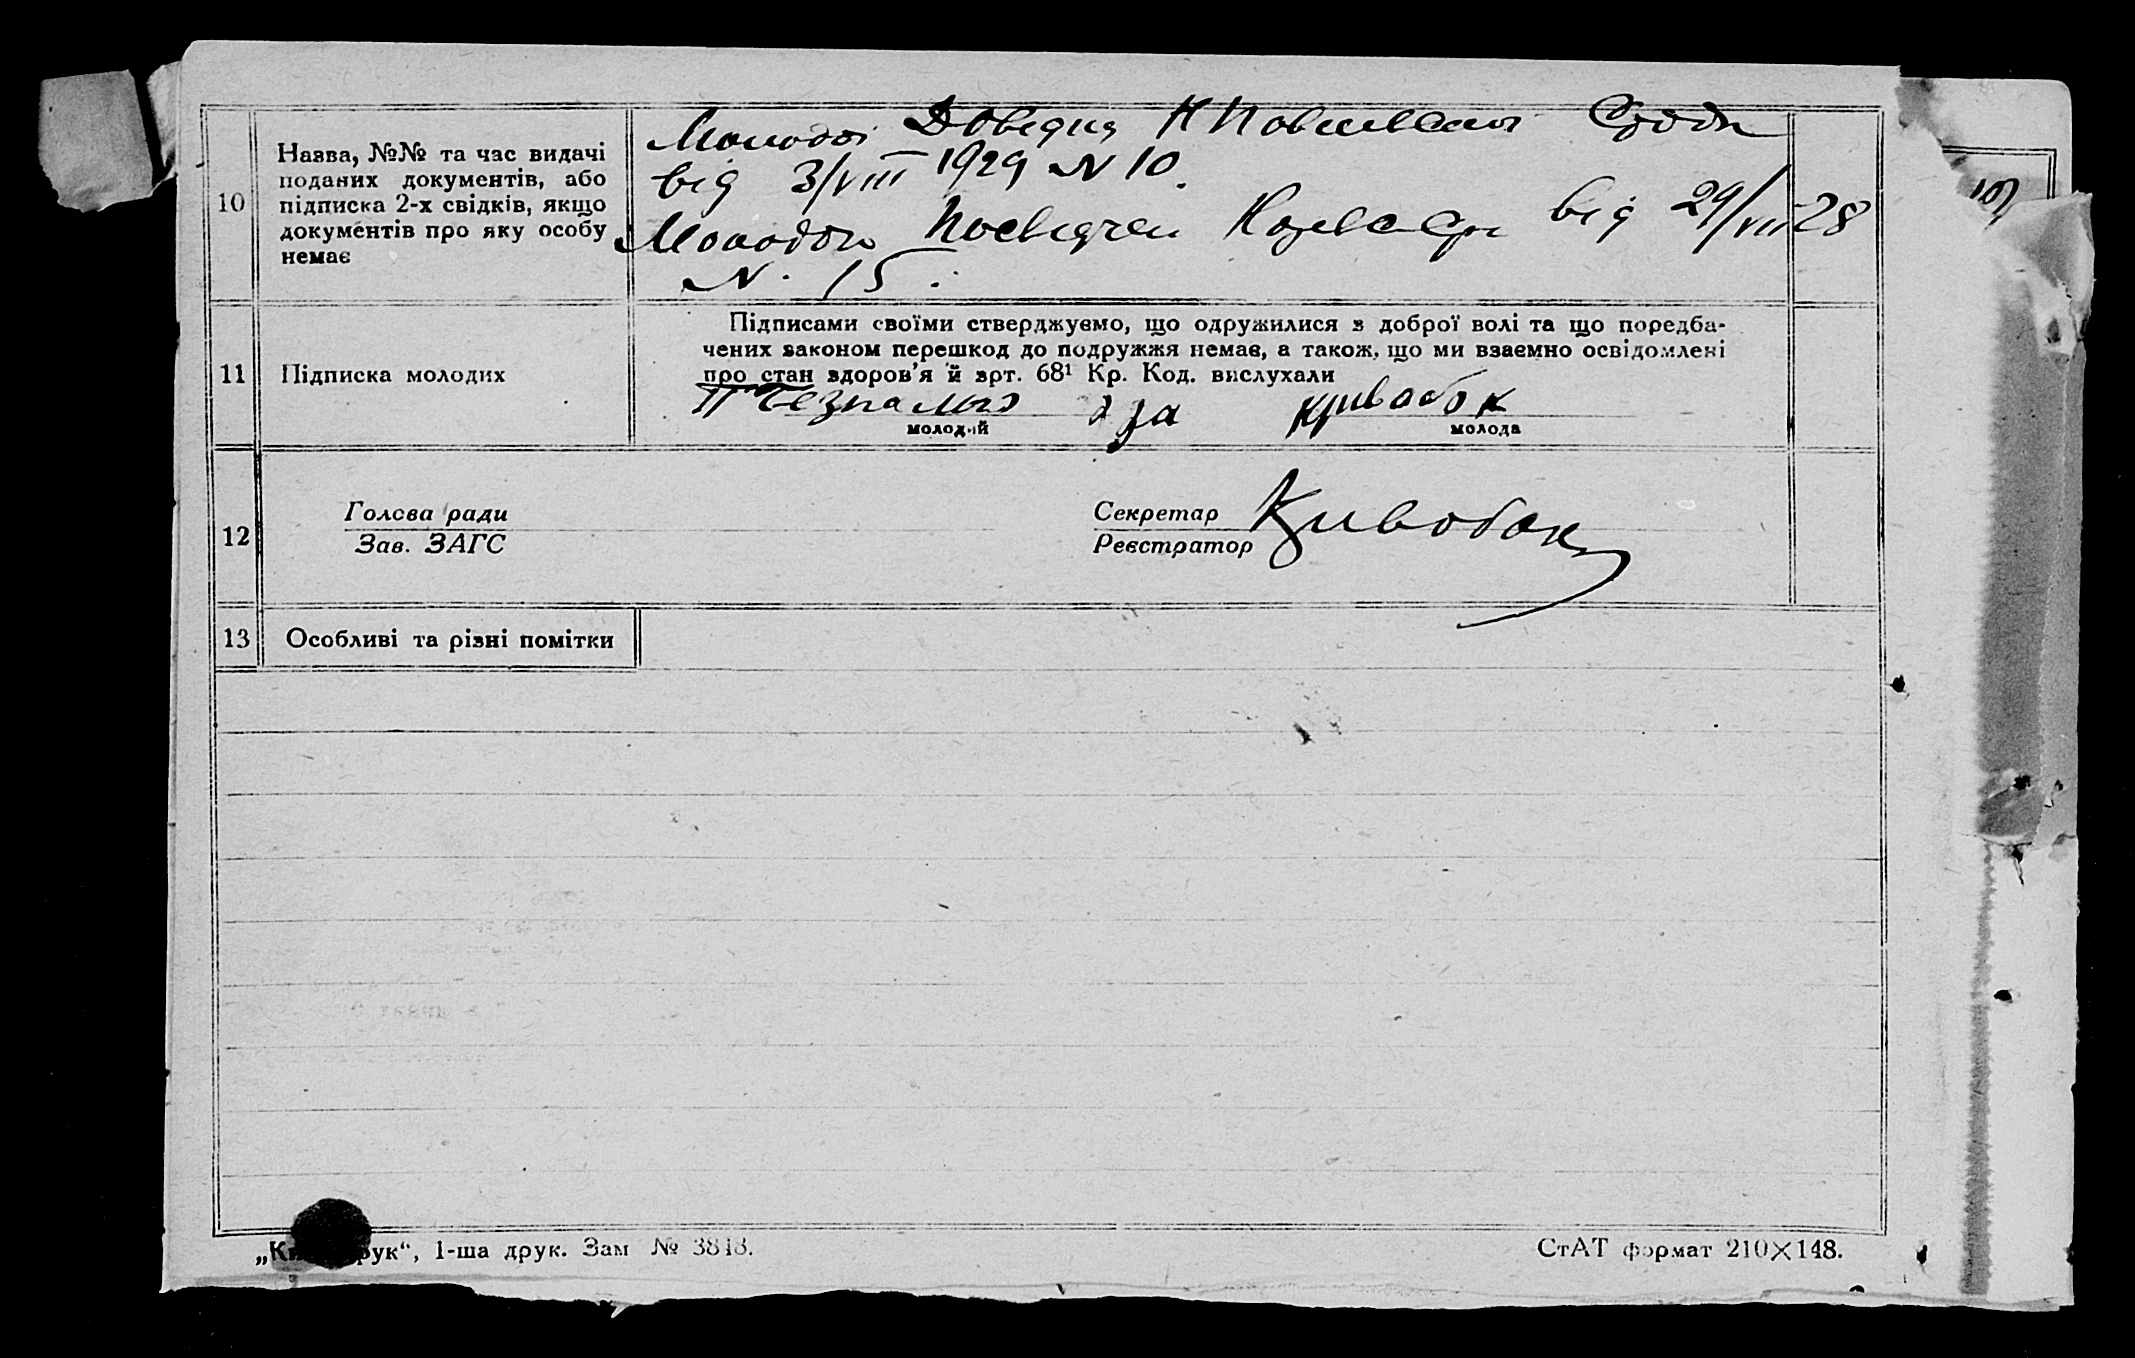 10
Назва, №№ та час видачі
поданих документів, або
підписка 2-х свідків, якщо
документів про яку особу
немає
Молодої Довідка
від 3/VIII 1929 N 10.
Молодого від 29/VII 28
N. 15.
11
Підписка молодих
Підписами своїми стверджуємо, що одружилися з доброї волі та що передба-
чених законом перешкод до подружжя немає, а також, що ми взаємно освідомлені
про стан здоров’я й арт. 68¹ Кр. Код. вислухали
за Кривобок
молодий молода
12
Голова ради
Зав. ЗАГС
Секретар
Реєстратор
Кривобок
13
Особливі та різні помітки
рук“, 1-ша друк. Зам № 3818.
СтАТ формат 210×148.